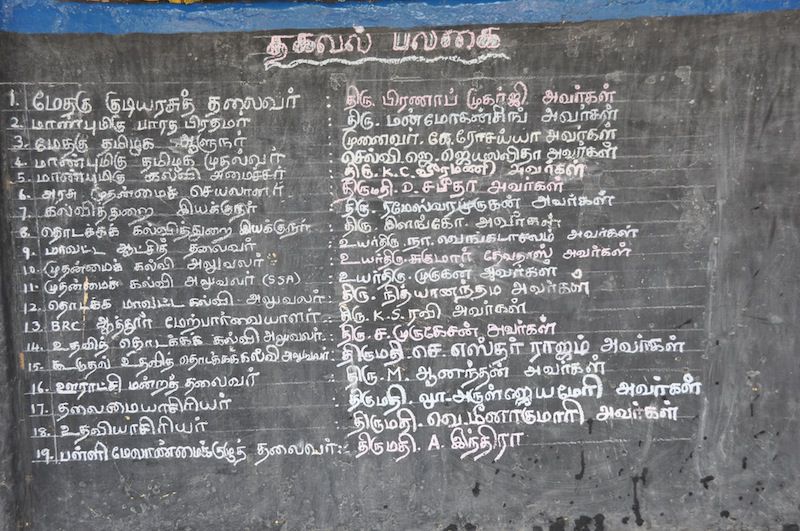 தகவல் பலகை
1. மேதகு குடியரசுத் தலைவர் : திரு. பிரணாப் முகர்ஜி அவர்கள்
2. மாண்புமிகு பாரத பிரதமர் : திரு. மன்மோகன்சிங் அவர்கள்
3. மேதகு தமிழக ஆளுநர் : முனைவர். கே. ரோசய்யா அவர்கள்
4. மாண்புமிகு தமிழக முதல்வர் : செல்வி. ஜெ. ஜெயலலிதா அவர்கள்
5. மாண்புமிகு கல்வி அமைச்சர் : திரு. K.C. வீரமணி அவர்கள்
6. அரசு முதன்மைச் செயலாளர் : திருமதி. D. சபிதா அவர்கள்
7. கல்வித்துறை இயக்குநர் : திரு. ரமேஸ்வரமுருகன் அவர்கள்
8. தொடக்கக் கல்வித்துறை இயக்குநர் : திரு. இளங்கோ அவர்கள்
9. மாவட்ட ஆட்சித் தலைவர் : உயர்திரு. நா. வெங்கடாசலம் அவர்கள்
10. முதன்மைக் கல்வி அலுவலர் : உயர்திரு. சுகுமார் தேவதாஸ் அவர்கள்
11. முதன்மைக் கல்வி அலுவலர் (SSA) : உயர்திரு. முருகன் அவர்கள்
12. தொடக்க மாவட்ட கல்வி அலுவலர் : திரு. நித்யானந்தம் அவர்கள்
13. BRC ஆத்தூர் மேற்பார்வையாளர் : திரு. K.S. ரவி அவர்கள்
14. உதவித் தொடக்கக் கல்வி அலுவலர் : திரு. ச. முருகேசன் அவர்கள்
15. கூடுதல் உதவித் தொடக்கக்கல்வி அலுவலர் : திருமதி. செ. எஸ்தர் ராஜம் அவர்கள்
16. ஊராட்சி மன்றத் தலைவர் : திரு. M. ஆனந்தன் அவர்கள்
17. தலைமையாசிரியர் : திருமதி. அருள்ஜெயமேரி அவர்கள்
18. உதவியாசிரியர் : திருமதி. வெ. மீனாகுமாரி அவர்கள்
19. பள்ளி மேலாண்மைக்குழுத் தலைவர் : திருமதி. A. இந்திரா